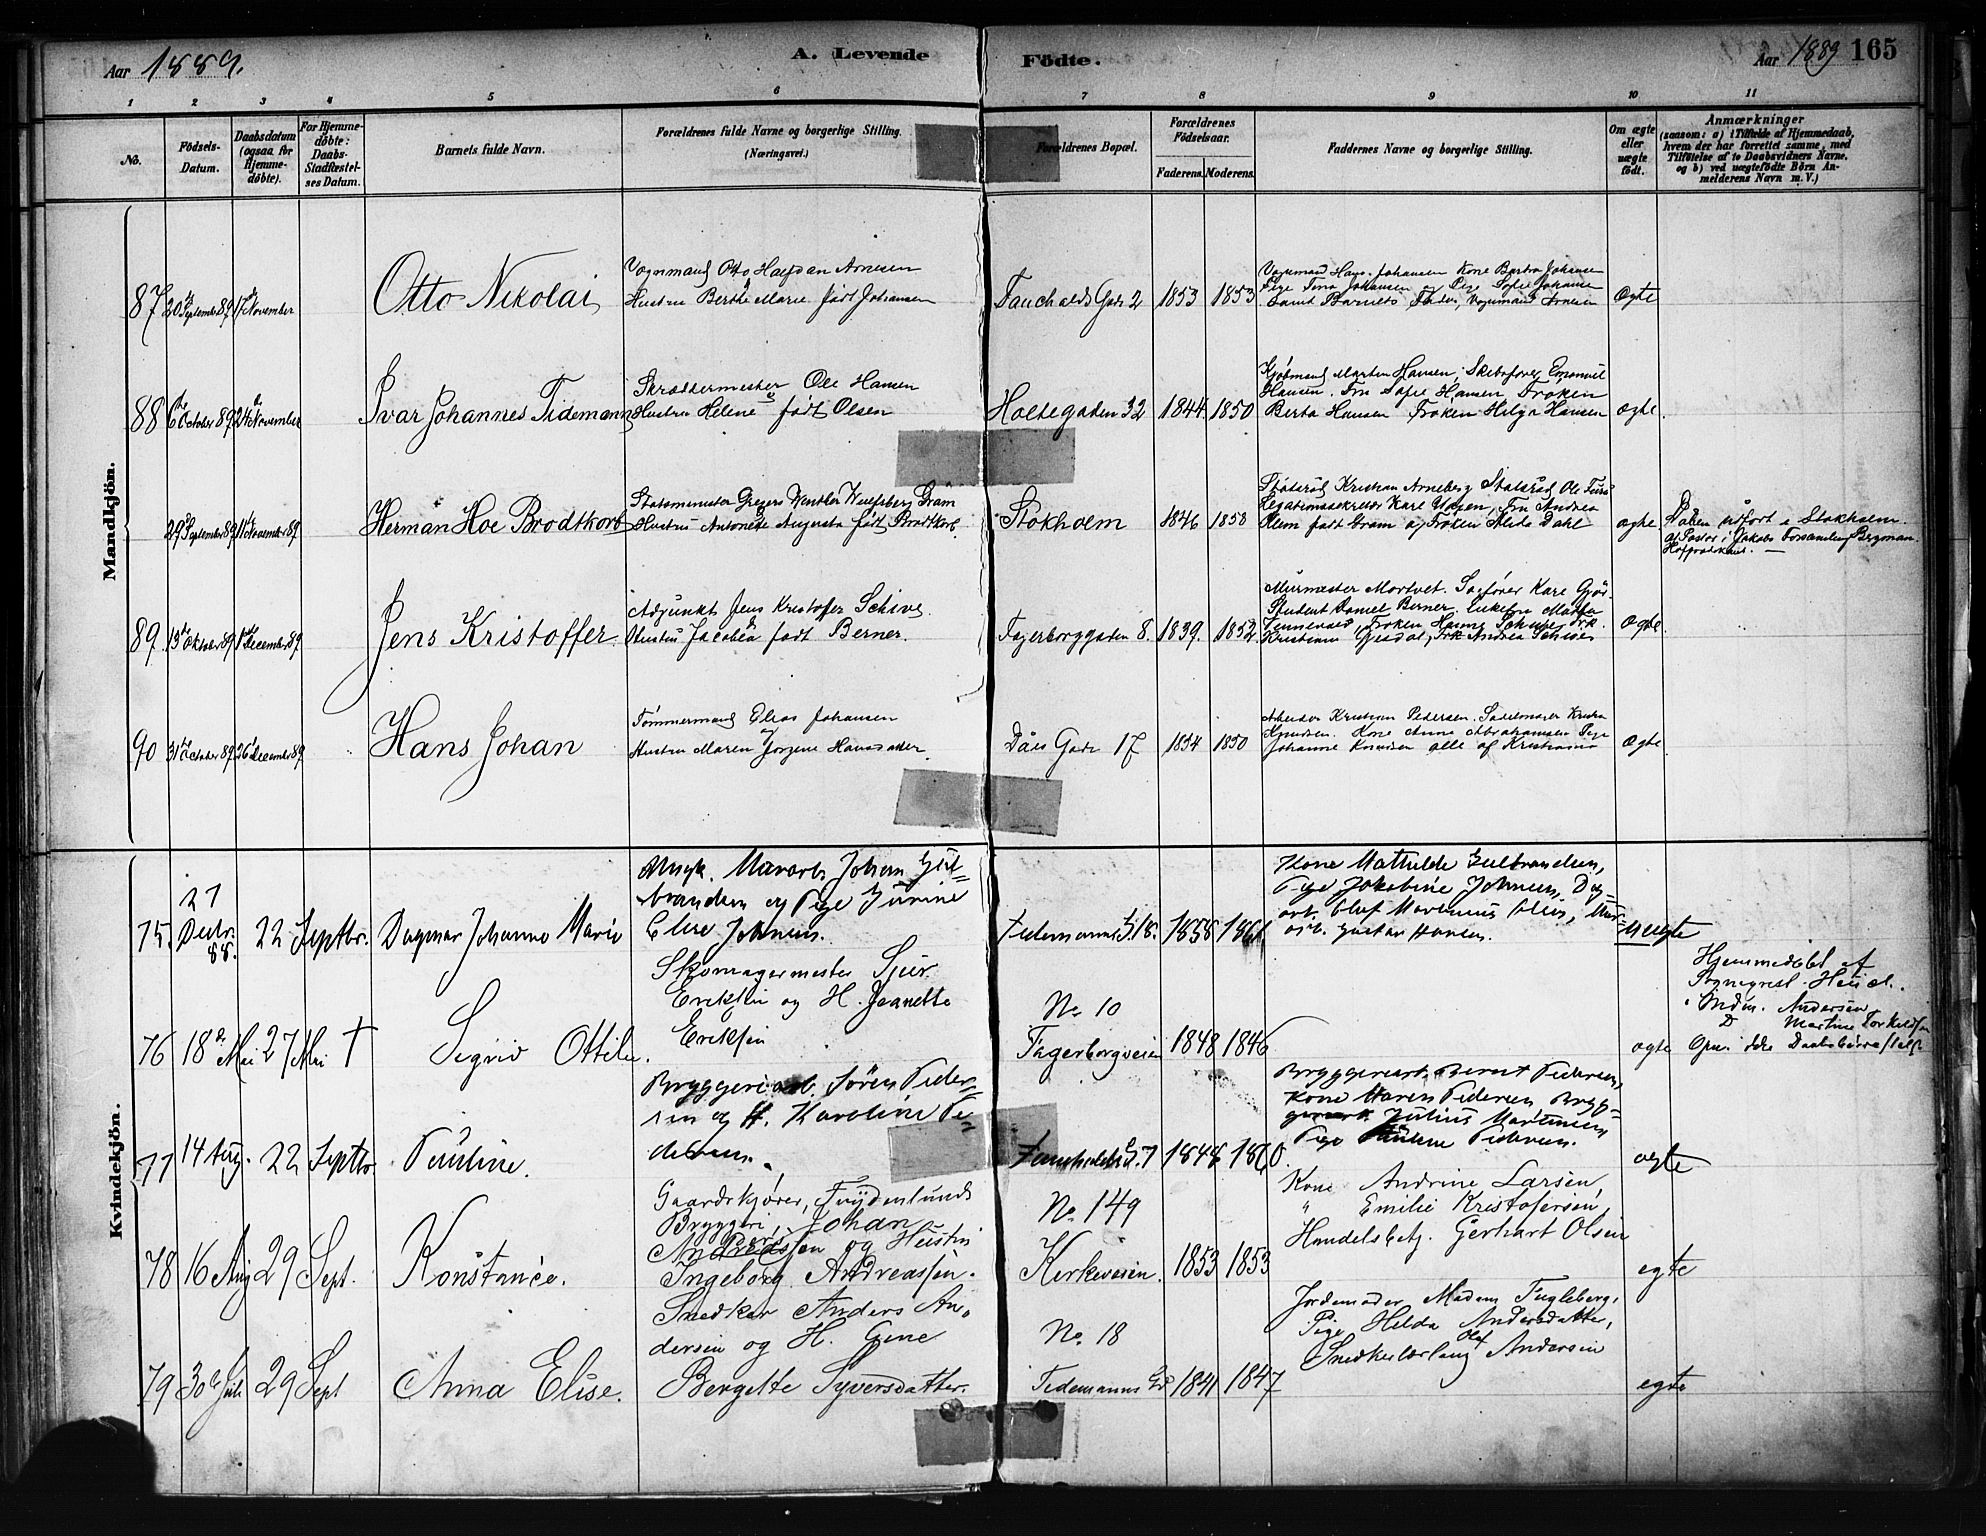 Aar 1889.
A. Levende
Fødte.
Aar 1889
165
1 2 3 4 5 6 7 8 9 10 11
No.
Fødsels-
Datum.
Daabsdatum
(ogsaa for
Hjemme-
døbte).
For Hjemme-
døbte:
Daabs-
Stadfæstel-
ses Datum.
Barnets fulde Navn.
Forældrenes fulde Navne og borgerlige Stilling.
(Næringsvei.)
Forældrenes Bopæl.
Forældrenes
Fødselsaar.
Faderens. Moderens.
Faddernes Navne og borgerlige Stilling.
Om ægte
eller
uægte
født.
Anmærkninger
(saasom: a) i Tilfælde af Hjemmedaab,
hvem der har forrettet samme, med
Tilføielse af to Daabsvidners Navne,
og b) ved uægtefødte Børn An-
melderens Navn m. V.)
Mandkjön.
87 20 September 89 17 November
Otto Nikolai
Vognmand Otto Halfdan Arnesen
Hustru Berthe Marie født Johansen
Fauchalds Gade 2
1853 1853
Vognmand Hans Johansen Kone Berta Johansen
Pige Tina Johansen og Pige Sofie Johansen
samt Barnets Fader, Vognmand Arnesen
Ægte
88 6 October 89 24 November
Ivar Johannes Tidemann
Skræddermester Ole Hansen
Hustru Helene født Olsen
Holtegaden 32
1844 1850
Kjøbmand Martin Hansen Emanuel
Hansen. Fru Sofie Hansen Frøken
Berta Hansen Frøken Helga Hansen
ægte
29 September 89 11 November 89
Herman Hoe Brodtkorb
Statsminister Gregers Winther Wulfsberg Gram
Hustru Antonette Augusta født Brodtkorb.
Stokholm
1846 1850
Statsraad Kristian Arneberg Statsraad Ole
Legationssekretær Fru Andrea
født Gram og Frøken Dahl
ægte
Daaben udført i Stokholm
af Pastor i Jakobs Forsamling Bergman.
Hofprædikant. —
89. 13 Oktober 89 1 December 89
Jens Kristoffer
Adjunkt Jens Kristoffer Schive
Hustru Jacobea født Berner.
Fagerborggaden 8.
1839. 1852.
Murmester Mortvet. Sagfører
Student Daniel Berner. Enkefru
Frøken Hanna Schive, Frk.
Kristiane Frk Andrea Schive
Ægte
90 31 October 89 26 December 89
Hans Johan
Tømmermand Elias Johansen
Hustru Maren Jørgine Hansdatter
Daas Gade 17
1854 1850
Arbeider Kristian Pedersen. Sadelmager
Knudsen. Kone Anne Abrahamsen Pige
Johanne Knudsen alle af Kristiania
Ægte
Kvindekjön.
75 27 Decbr. 88. 22 Septbr.
Dagmar Johanne Marie
Johan Gul=
brandsen og Pige Jurine
Elise Johnsen.
Tidemanns G. 18.
1858 1861
Kone Mathilde Gulbrandsen,
Pige Jakobine Johnsen, Dag=
arb. Olaf Martinius Olsen, Mur=
arb. Gustav Hansen.
uægte
76 18 Mai 27 Mai †
Sigrid Ottilie.
Skomagermester Sjur
Eriksen og H. Jeanette
Eriksen
No 10
Fagerborgveien
1848 1846
ægte
Hjemmedøbt af
Sogneprest
Andersen
Martine Torkeldsen
77 14 Aug. 22 Septbr
Pauline.
Bryggeriarb. Søren Peder=
sen og H. Karoline Pe=
dersen.
Fauchalds G. 7
1848 1860
Bryggeriarb. Bernt Pedersen,
Kone Maren Pedersen Bryg=
geriarb. Julius Martinsen
Pige Pauline Pedersen.
ægte
78 16 Aug 29 Sept.
Konstance.
Gaardskjører, Frydenlunds
Bryggeri, Johan
Andreassen og Hustru
Ingeborg Andreassen.
No. 149
Kirkeveien.
1853 1853
Kone Andrine Larsen
" Emilie Kristofersen,
Handelsbetj. Gerhart Olsen
egte
79 30 Juli 29 Sept
Anna Elise.
Snedker Anders An-
dersen og H. Gine
Bergitte Syversdatter.
No. 18
Tidemanns Gd
1841 1847
Jordemoder Madam Fugleberg,
Pige Hilda Andersdatter,
Snedkerlærling Olaf Andersen
egte